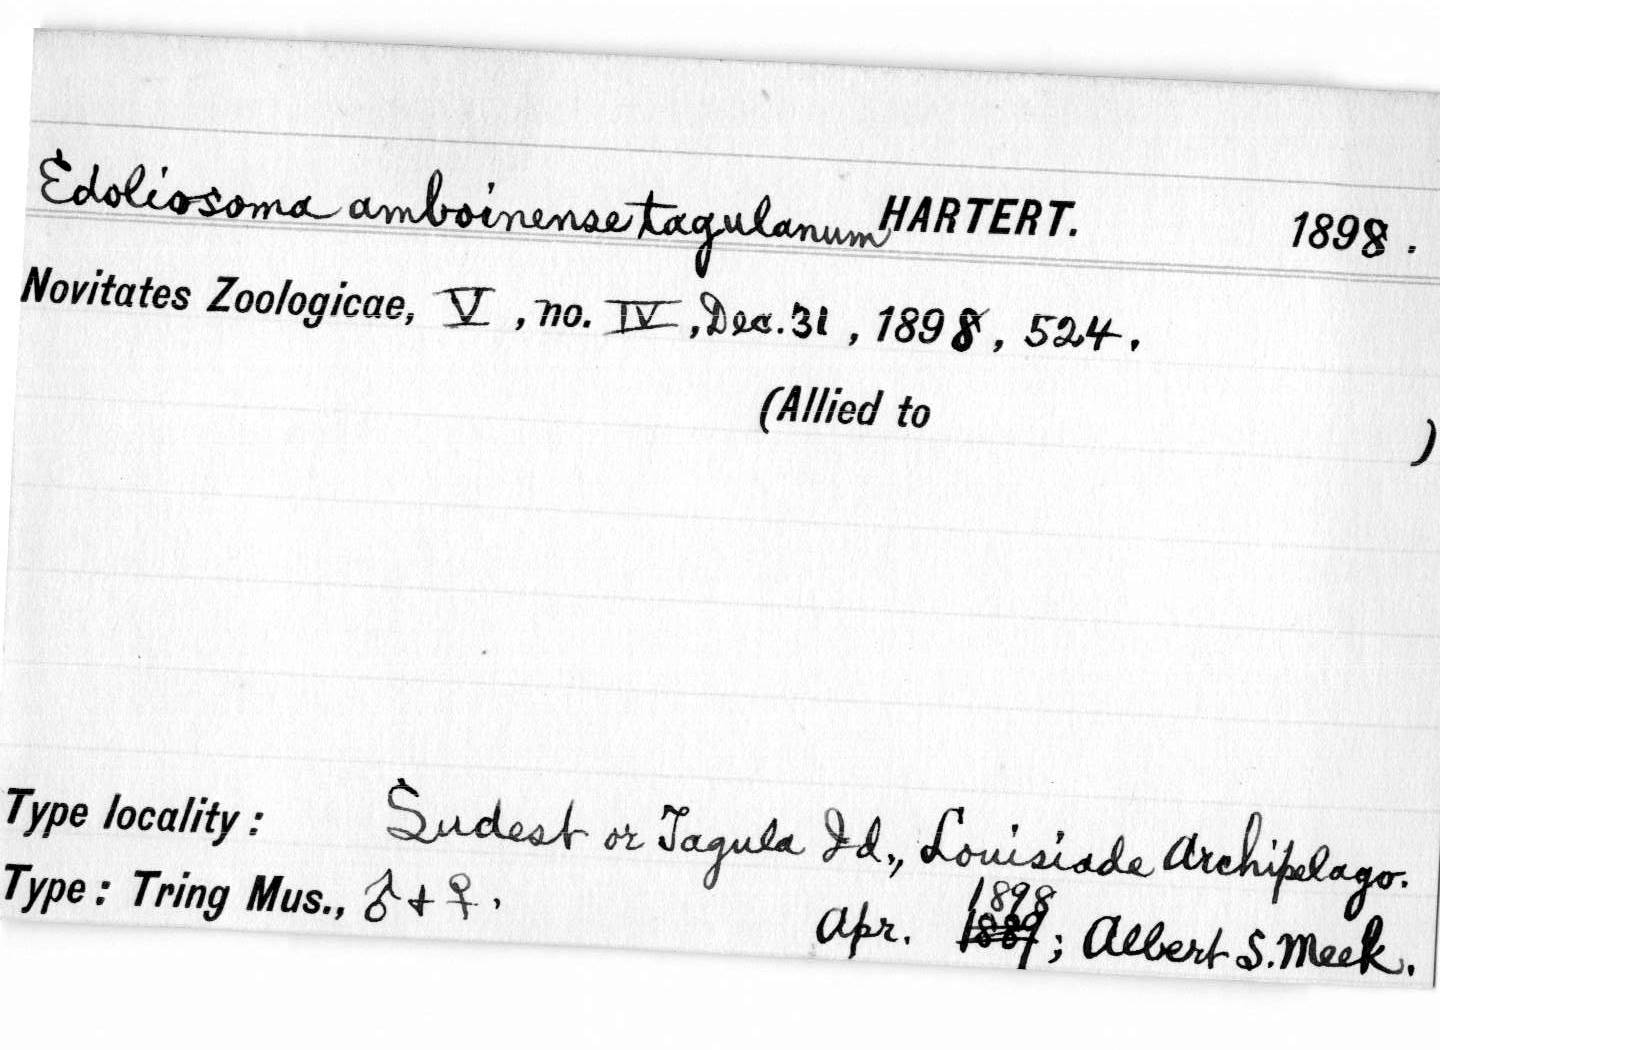 Edoliosoma amboinense tagulanum HARTERT. 1898.
Novitates Zoologicae, V, no. IV, Dec. 31, 1898, 524.
(Allied to )
Type locality: Sudest or Tagula Id., Louisiade Archipelago.
Type: Tring Mus., ♂ + ♀. Apr. 1898 1889; Albert S. Meek.